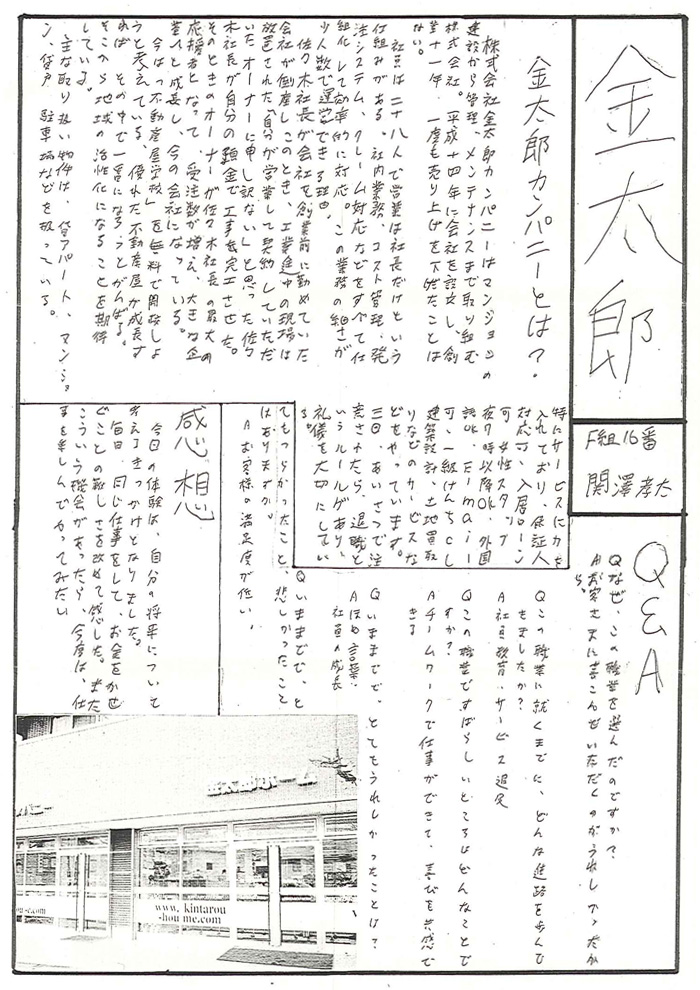 金太郎
F組16番
関澤孝太
金太郎カンパニーとは?
株式会社金太郎カンパニーはマンションの
建設から管理、メンテナンスまで取り組む
株式会社。平成十四年に会社を設立し、創
業十一年、一度も売り上げを下げたことは
ない。
社員は二十八人で営業は社長だけという
仕組みがある。社内業務、コスト管理、発
注システム、クレーム対応などをすべて仕
組化して効率的に対応。この業務の細さが
少人数で運営できる理由。
佐々木社長が会社を創業前に勤めていた
会社が倒産しこのとき、工業途中の現場は
放置された「自分が営業して契約していただ
いたオーナーに申し訳ない」と思った佐々
木社長が自分の預金で工事を完工させた。
そのときのオーナーが佐々木社長の最大の
応援者となって、受注数が増え、大きな企
業へと成長し、今の会社になっている。
今は「不動産屋学校」を無料で開設しよ
うと考えている。優れた不動産屋が成長す
れば、その中で一番になろうとがんばる。
そこから地域の活性化になることを期待
している。
主な取り扱い物件は、貸アパート、マンショ
ン、貸戸、駐車場などを扱っている。
特にサービスに力を
入れており、保証人
対応可、入居ローン
可、女性スタッフ
夜7時以降OK、外国
語OK、Emai
可、一級けんちくし
建築設計、土地買取
りなどのサービスな
どをやっています。
三日、あいさつで注
意されたら、退職と
いうルールがあり、
礼儀を大切にしてい
る。
Q&A
Qなぜ、この職業を選んだのですか?
Aお客さまに喜こんでいただくのがうれしかったか
ら。
Qこの職業に就くまでに、どんな進路を歩んで
きましたか?
A社員教育・サービス追及
Qこの職業ですばらしいところはどんなことで
すか?
Aチームワークで仕事ができて、喜びを共感で
きる
Qいままでで、とてもうれしかったことは?
Aほめ言葉・
社員の成長
Qいままでで、と
てもつらかったこと、悲しかったこと
はありますか。
Aお客様の満足度が低い、
感想
今日の体験は、自分の将来についいて
考えるきっかけとなりました。
毎日、同じ仕事をして、お金をかせ
ぐことの難しさを改めて感じた。また
こういう機会があったら、今度は、仕
事を楽しんでやってみたい
www.kintarou
-hou me.com